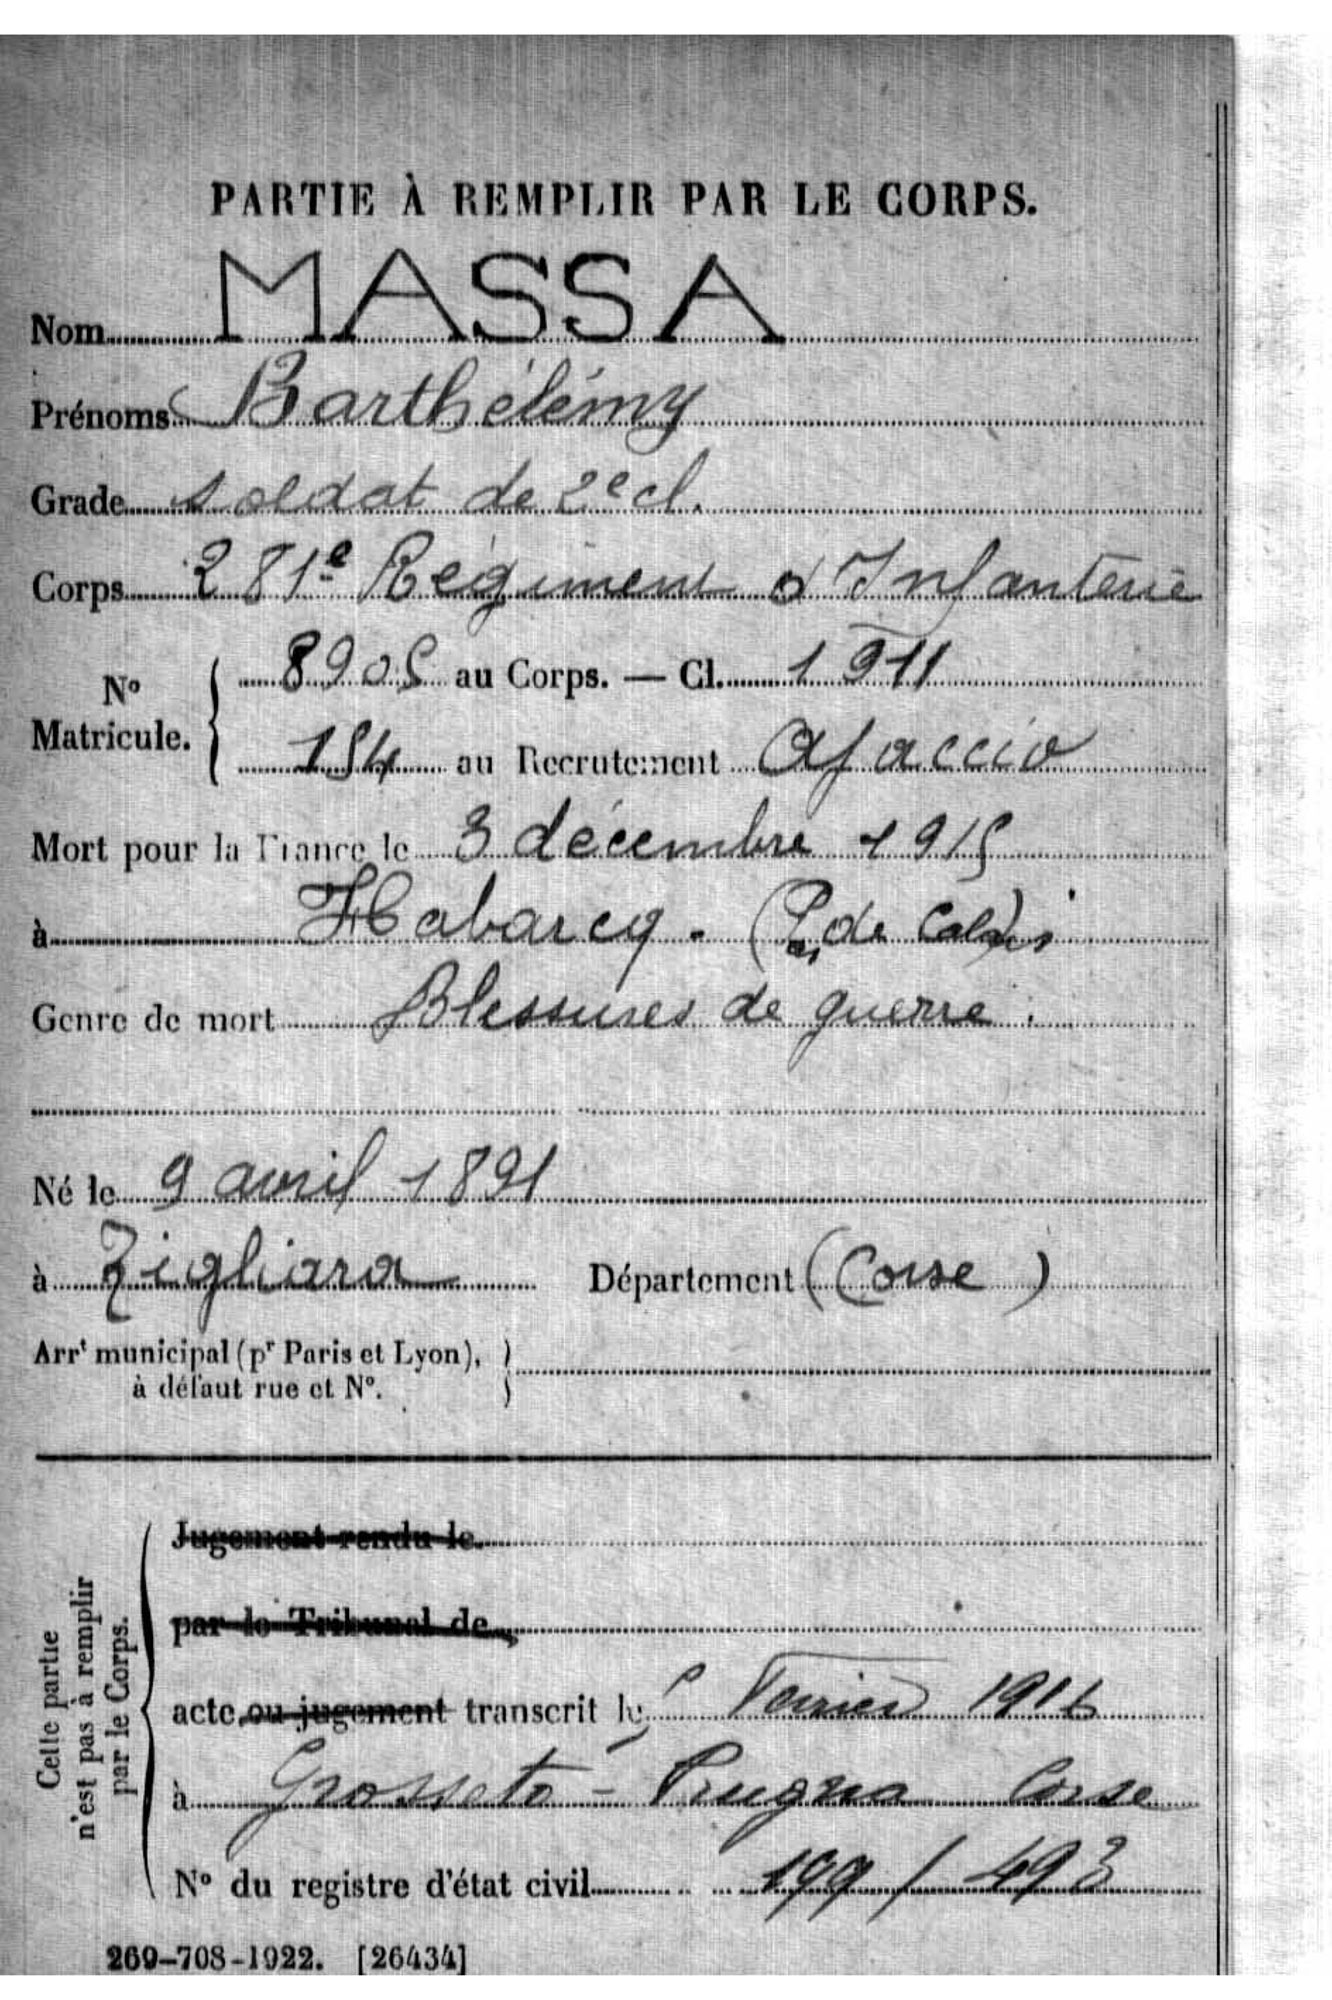 PARTIE À REMPLIR PAR LE CORPS.
Nom MASSA
Prénoms Barthélémy
Grade soldat de 2e cl.
Corps 281e Régiment d'Infanterie
No Matricule. 8905 au Corps. — Cl. 1911
154 au Recrutement Ajaccio
Mort pour la France le 3 décembre 1915
à Habarcq. (P. de Calais)
Genre de mort Blessures de guerre.
Né le 9 avril 1891
à Zigliara Département (Corse)
Arrt municipal (pr Paris et Lyon),
à défaut rue et No.
Cette partie
n'est pas à remplir
par le Corps.
Jugement rendu le
par le Tribunal de
acte ou jugement transcrit le Février 1916
à Grosseto - Prugna Corse
No du registre d'état civil 199 / 493
269-708-1922. [26434]